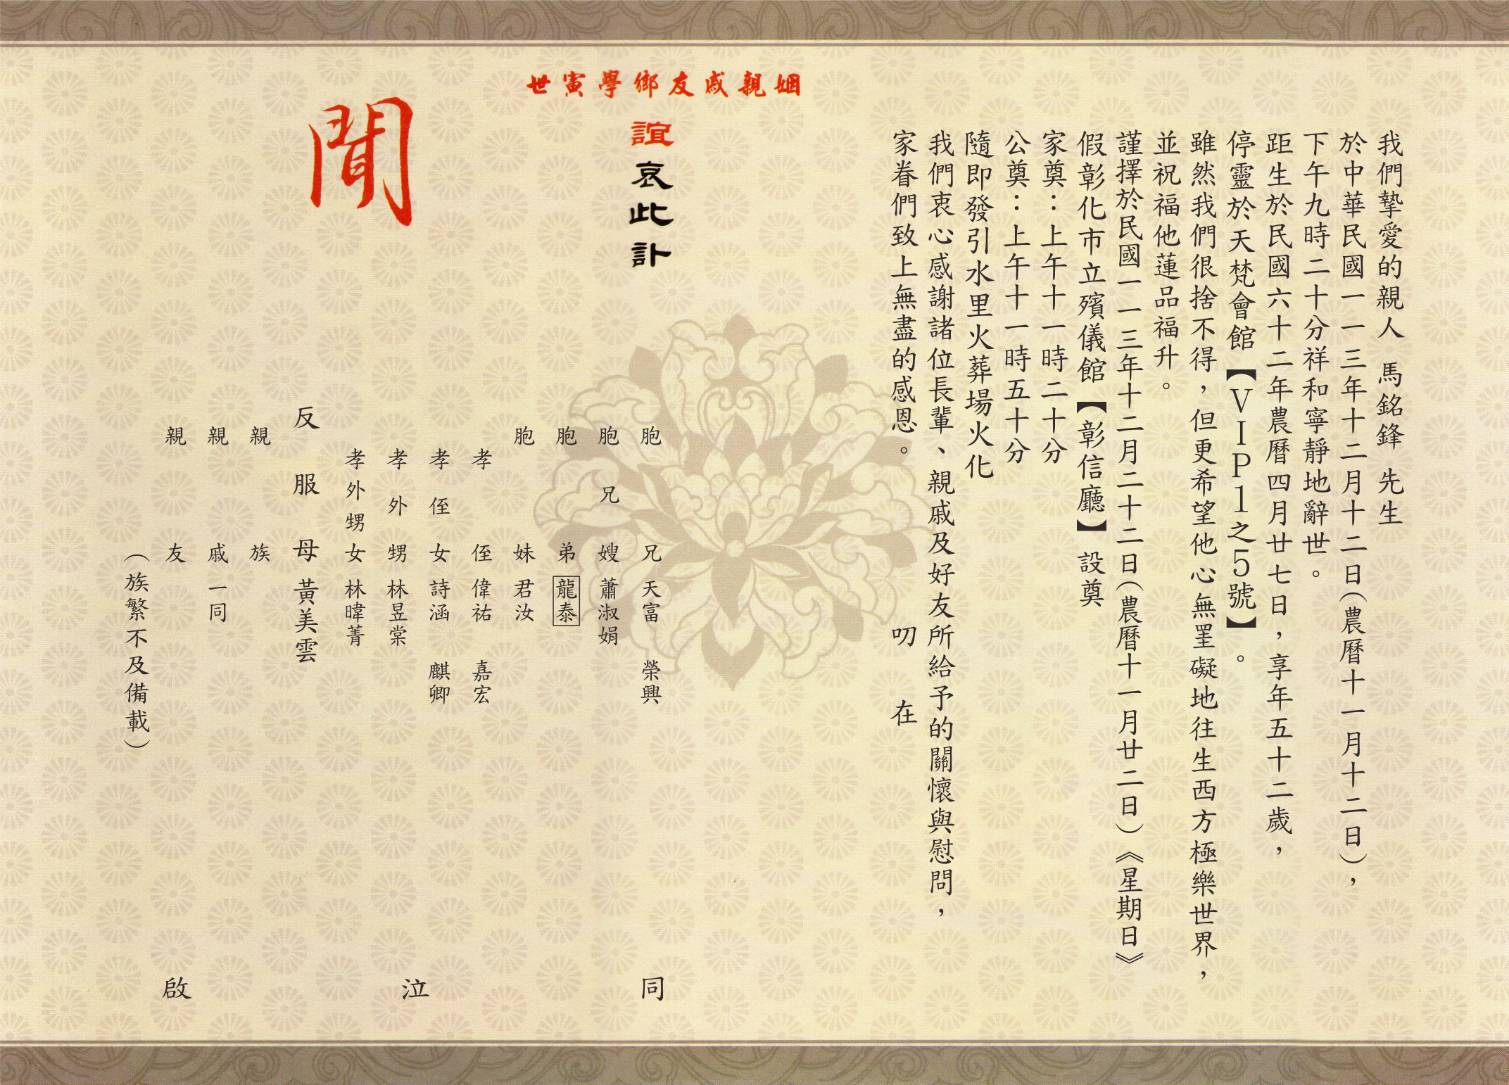 我們摯愛的親人 馬銘鋒 先生
於中華民國一一三年十二月十二日(農曆十一月十二日)，
下午九時二十分祥和寧靜地辭世。
距生於民國六十二年農曆四月廿七日，享年五十二歲，
停靈於天梵會館【VIP1之5號】。
雖然我們很捨不得，但更希望他心無罣礙地往生西方極樂世界，
並祝福他蓮品福升。
謹擇於民國一一三年十二月二十二日(農曆十一月廿二日)《星期日》
假彰化市立殯儀館【彰信廳】設奠
家奠：上午十一時二十分
公奠：上午十一時五十分
隨即發引水里火葬場火化
我們衷心感謝諸位長輩、親戚及好友所給予的關懷與慰問，
家眷們致上無盡的感恩。 叨 在
姻親戚友鄉學寅世
誼哀此訃
聞
胞 兄 天富 榮興
胞兄嫂 蕭淑娟
胞 弟 龍泰
胞 妹 君汝
孝 侄 偉祐 嘉宏
孝侄女 詩涵 麒卿
孝外甥 林昱棠
孝外甥女 林暐菁
反服母 黃美雲
親 族
親 戚 一同
親 友
(族繁不及備載)
同 泣 啟